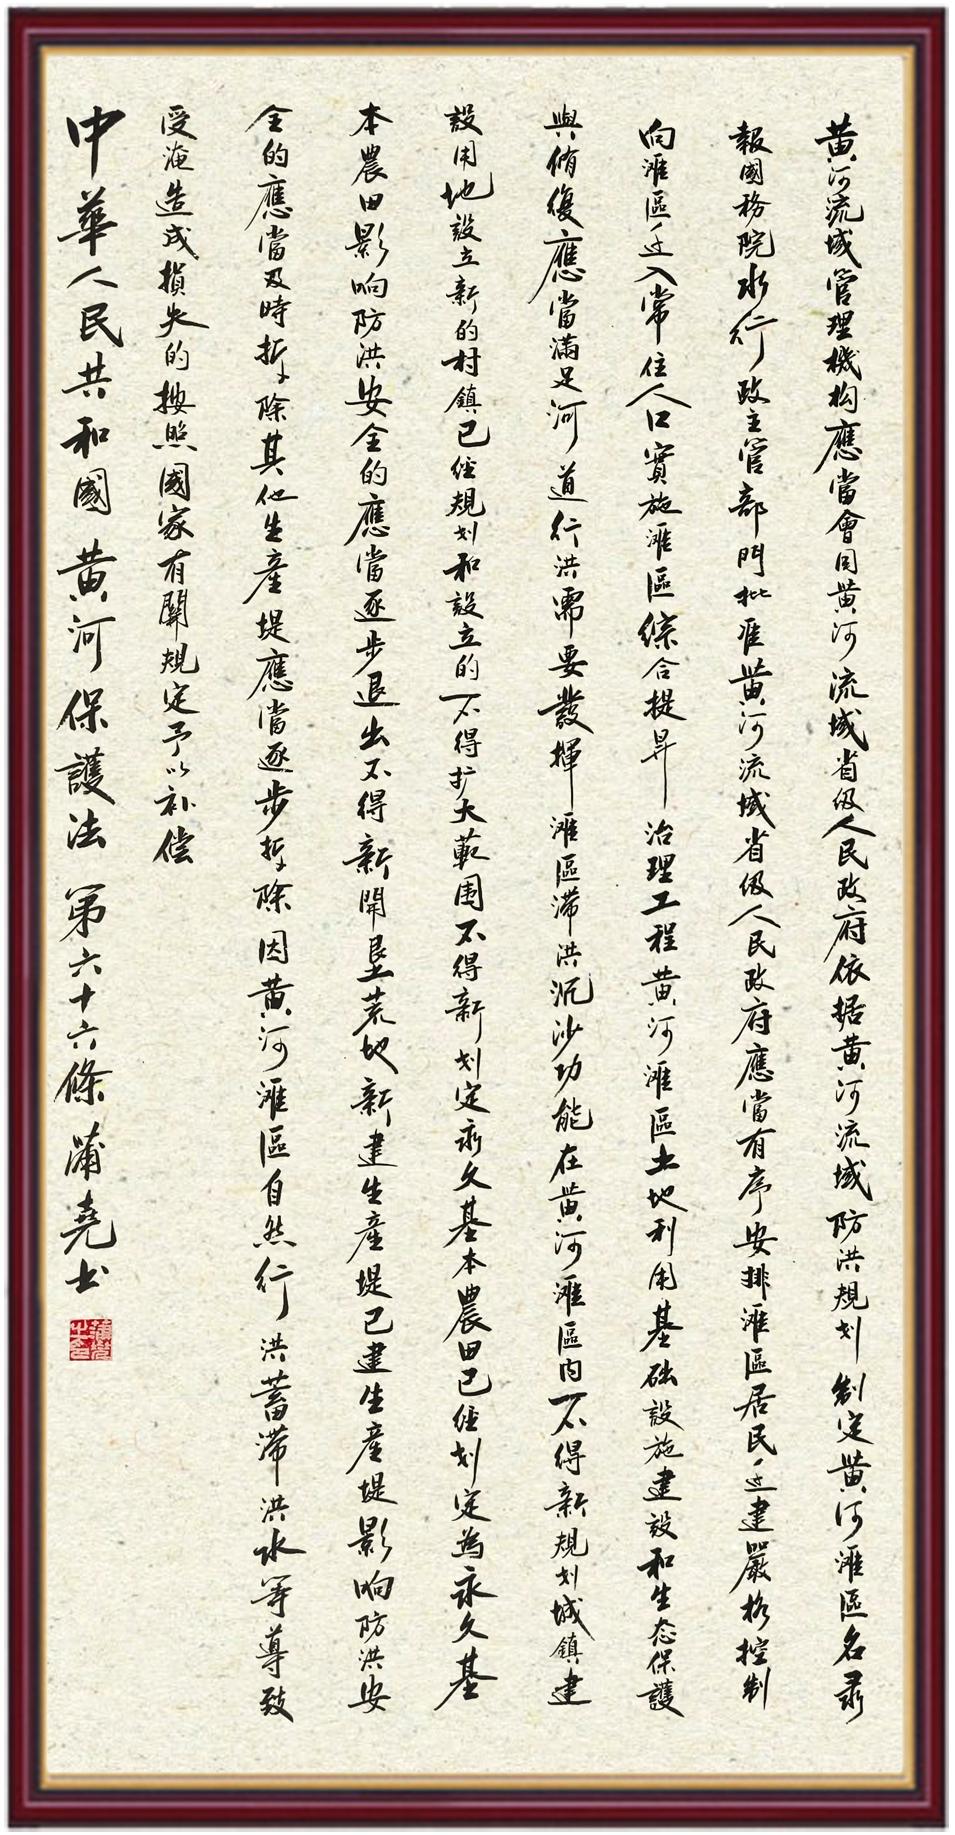 黄河流域管理機构應當會同黄河流域省级人民政府依据黄河流域防洪規划制定黄河滩區名录
報國务院水行政主管部門批准黄河流域省级人民政府應當有序安排滩區居民迁建嚴格控制
向滩區迁入常住人口實施滩區综合提昇治理工程黄河滩區土地利用基础設施建設和生态保護
與脩復應當滿足河道行洪需要發揮滩區滞洪沉沙功能在黄河滩區内不得新規划城鎮建
設用地設立新的村鎮已经規划和設立的不得扩大範围不得新划定永久基本農田已经划定為永久基
本農田影响防洪安全的應當逐步退出不得新開垦荒地新建生產堤已建生產堤影响防洪安
全的應當及時拆除其他生產堤應當逐步拆除因黄河滩區自然行洪蓄滞洪水等導致
受淹造成損失的按照國家有關規定予以补偿
中華人民共和國黄河保護法第六十六條蒲堯书